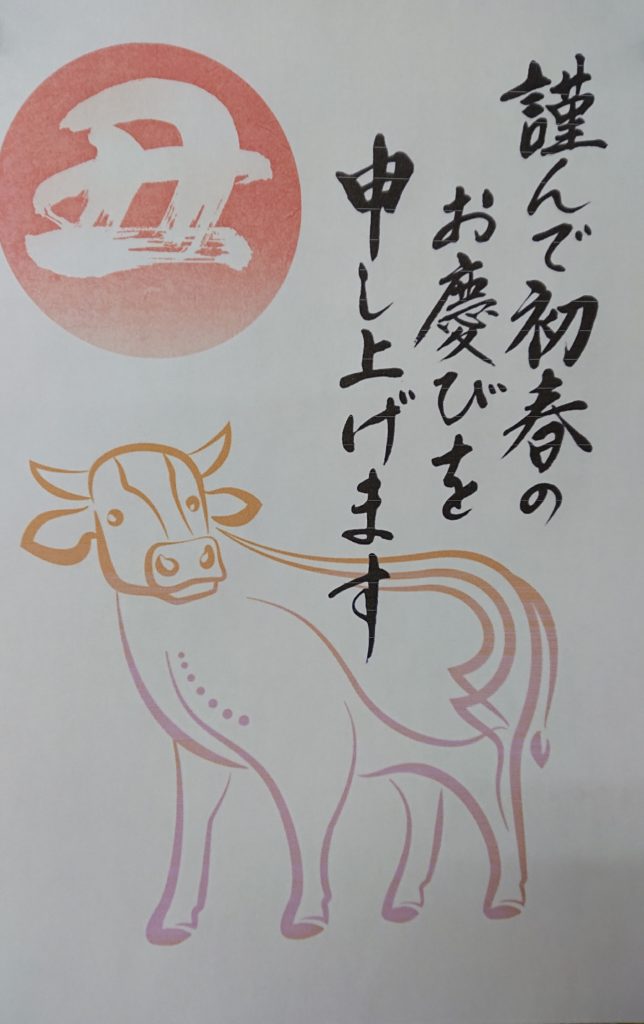 謹んで初春の
お慶びを
申し上げます
丑